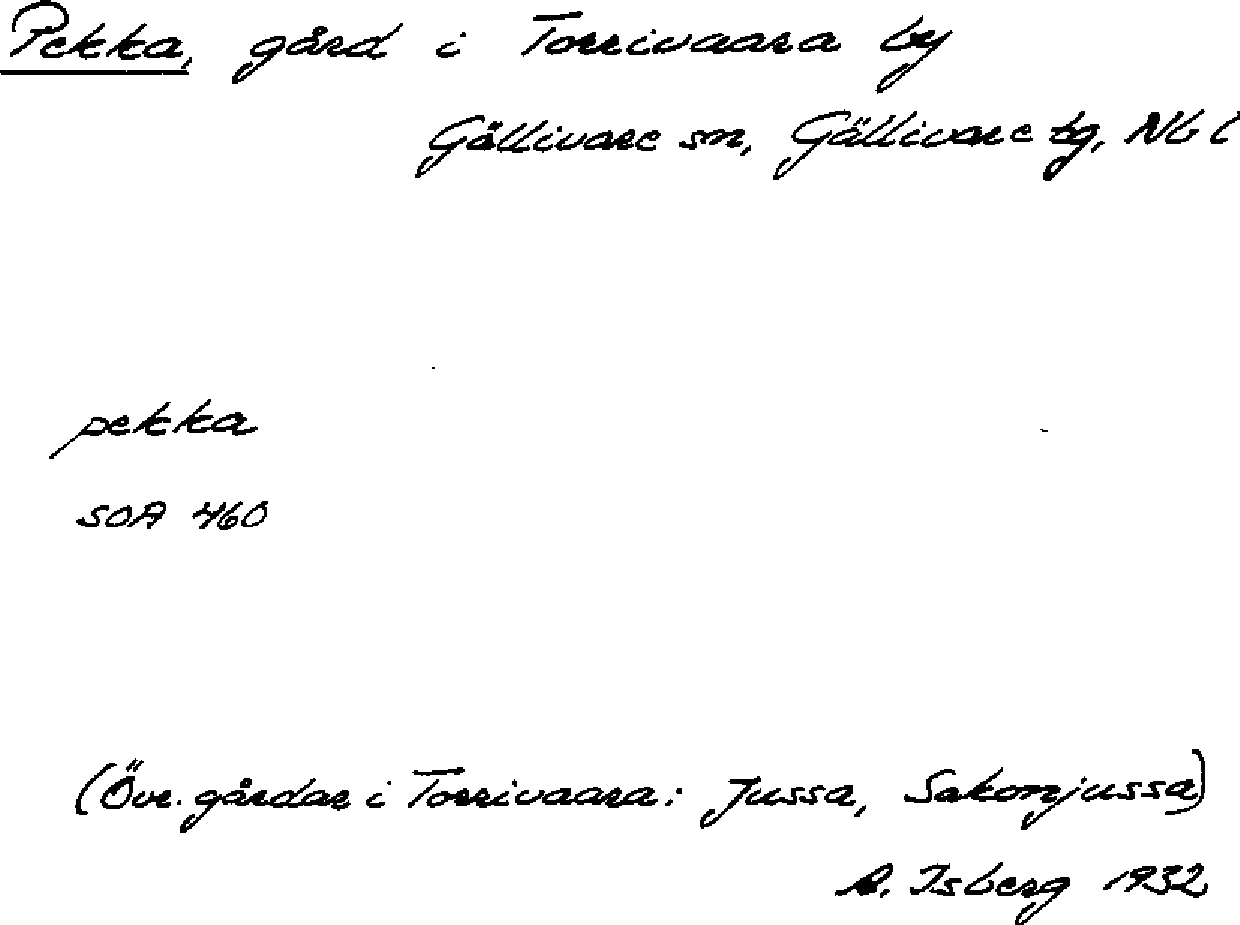 Pekka, gård i Torrivaara by
Gällivare sn, Gällivare tg, Nb l
pekka
SOA 460
(Övr. gårdar i Torrivaara: Jussa, Sakonjussa)
A. Isberg 1932